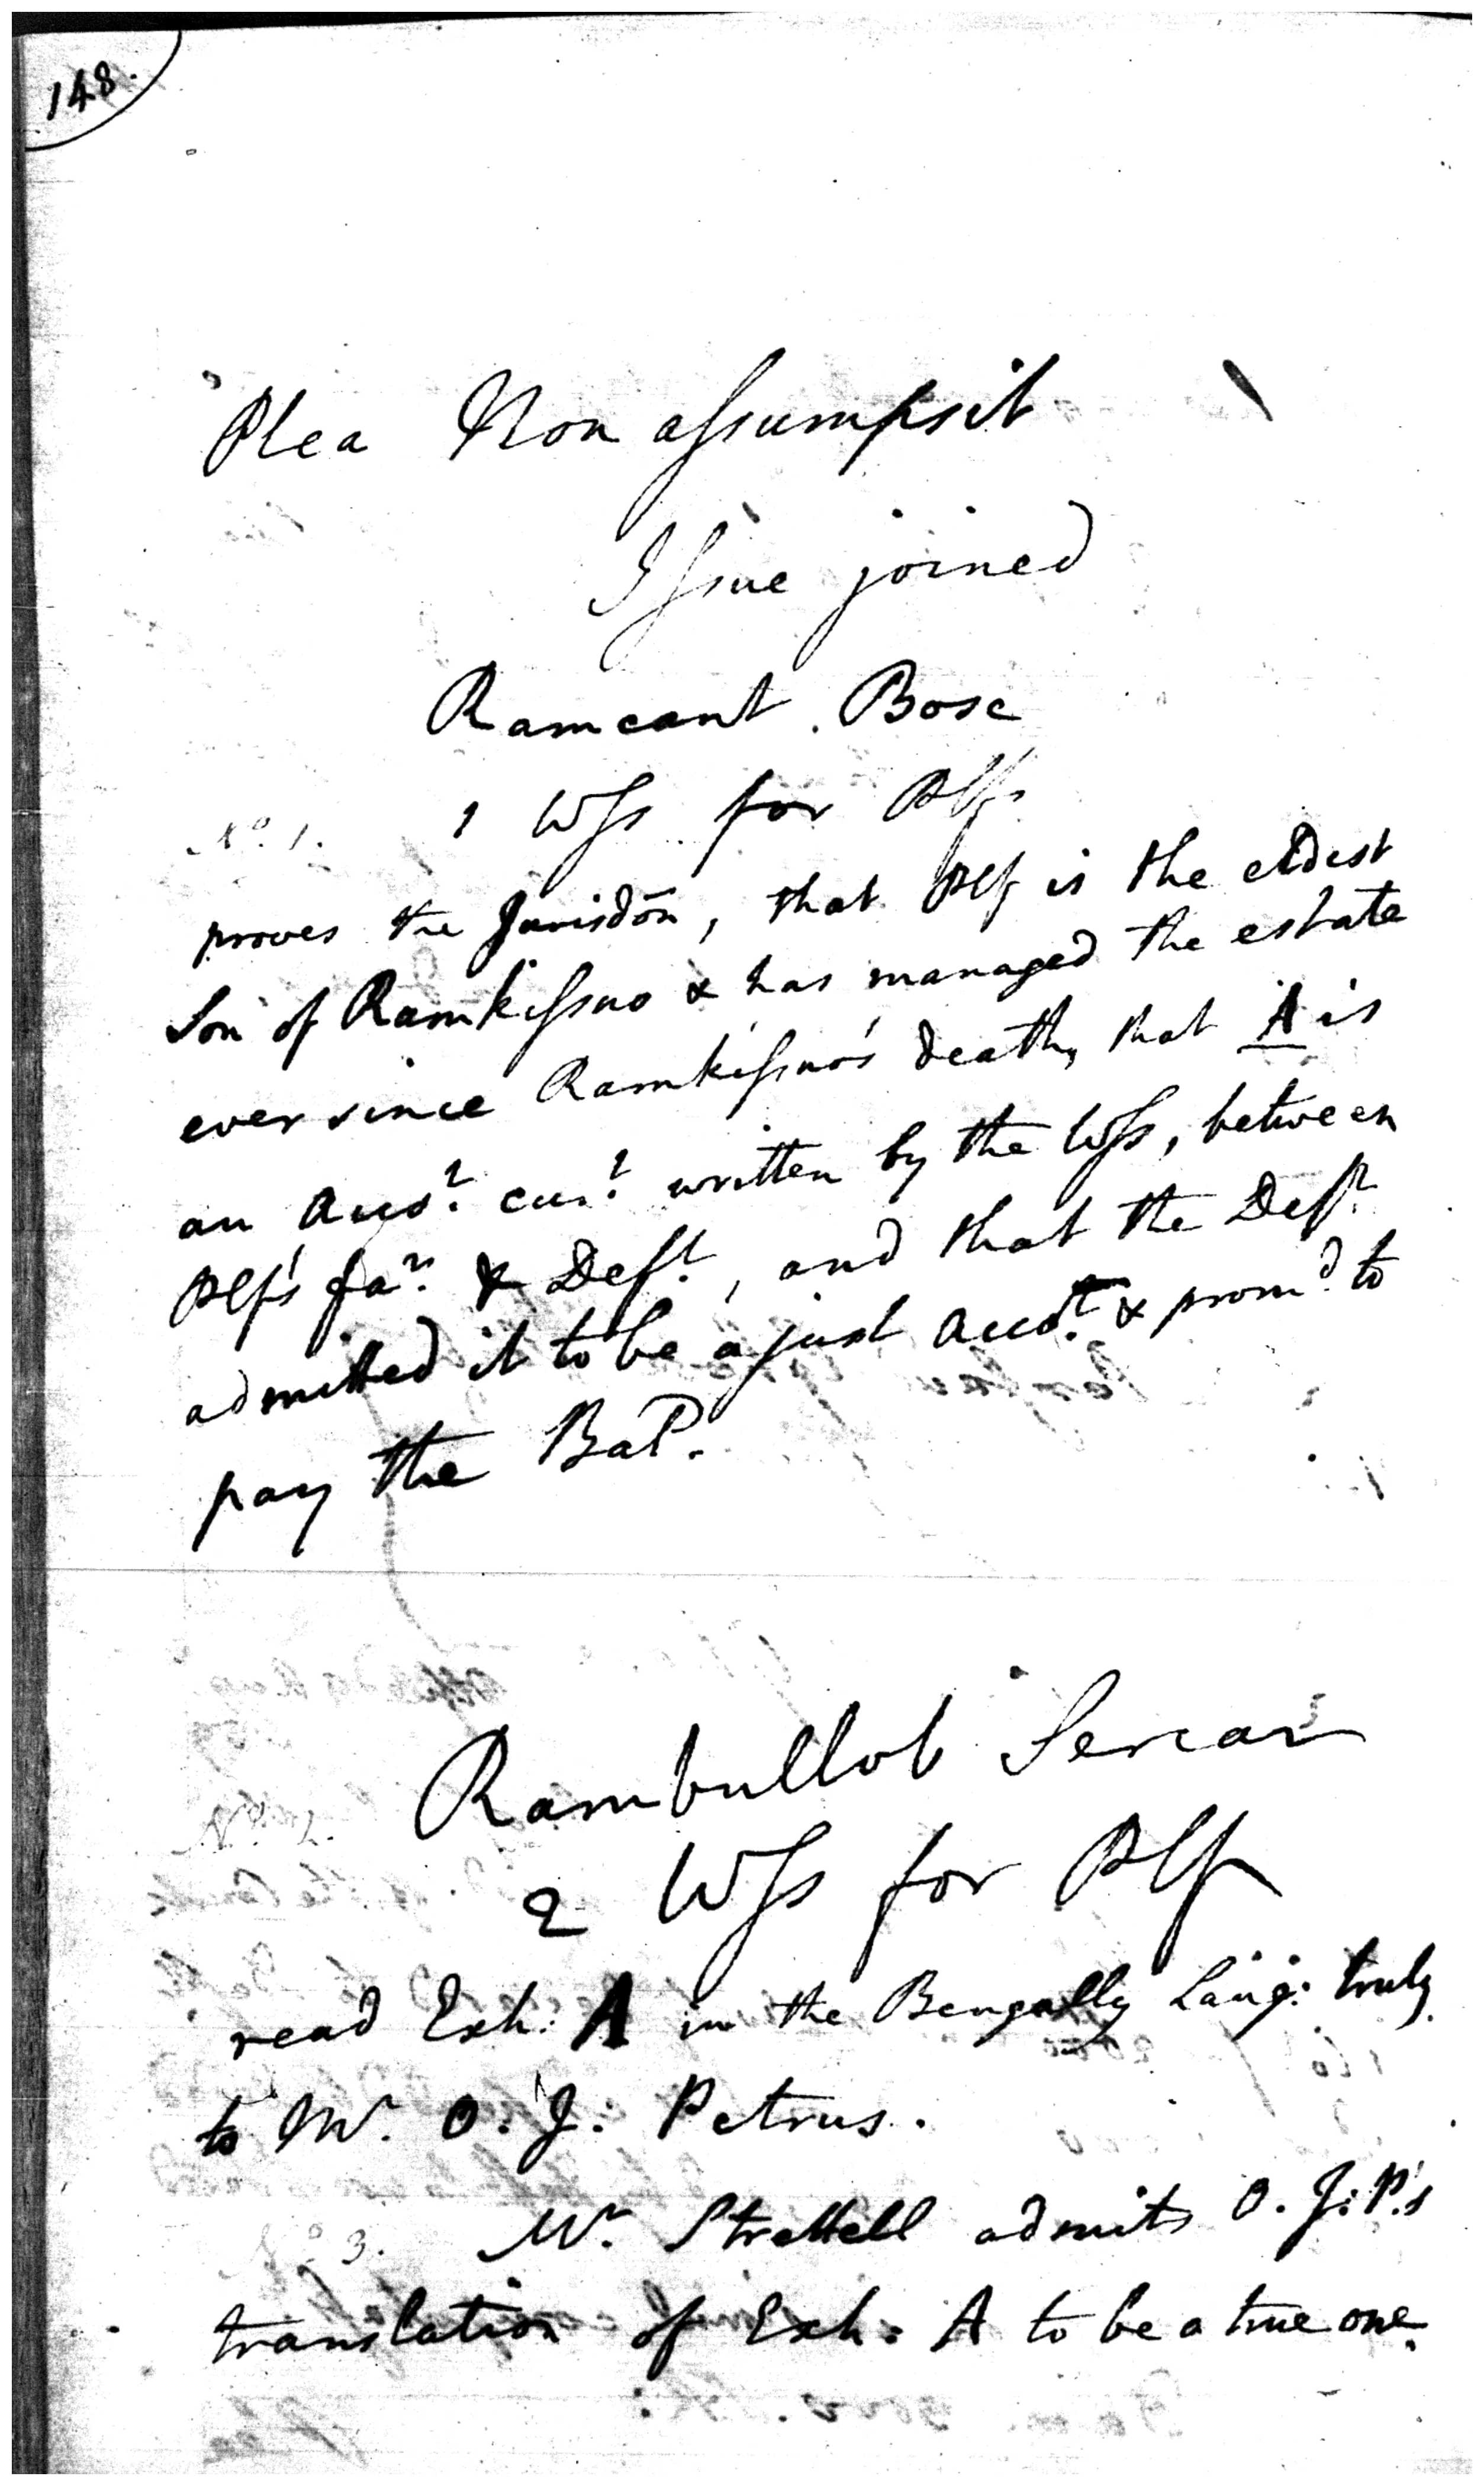 148.
Plea Non assumpsit
Issue joined
Ramcant Bose
No. 1. 1 Wss for Plf
proves the Jurisdōn, that Plf is the eldest
Son of Ramkissno & has managed the estate
ever since Ramkissno's death, that A is
an Accot. curt. written by the Wss, between
Plf's far. & Deft., and that the Deft.
admitted it to be a just Accot. & promd. to
pay the Bal.
Rambullob Sercar
No. 2. 2 Wss for Plf
read Exh: A in the Bengally Lang: truly
to Mr. O. J. Petrus.
No. 3. Mr. Strettell admits O. J: P.'s
translation of Exh: A to be a true one.